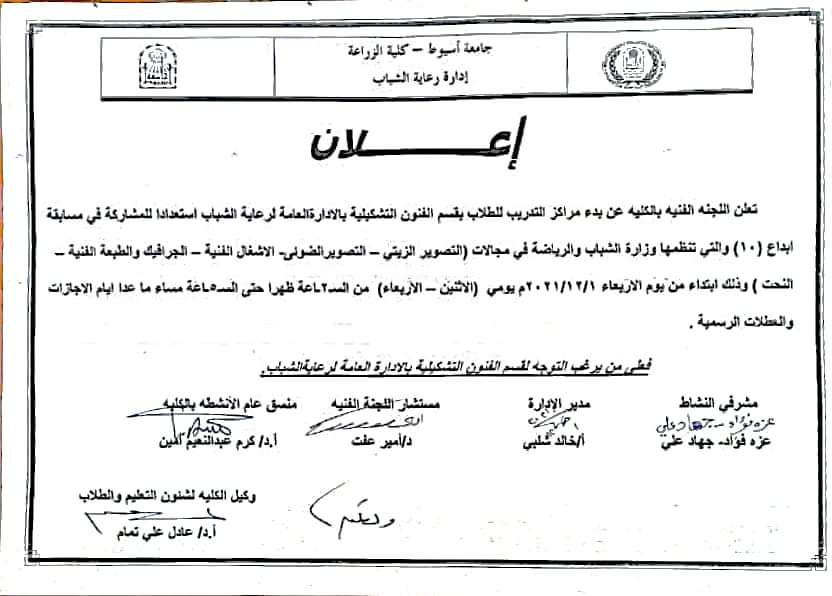 جامعة أسيوط – كلية الزراعة
إدارة رعاية الشباب
إعـــــلان
تعلن اللجنه الفنيه بالكليه عن بدء مراكز التدريب للطلاب بقسم الفنون التشكيلية بالادارةالعامة لرعاية الشباب استعدادا للمشاركة في مسابقة
ابداع (١٠) والتي تنظمها وزارة الشباب والرياضة في مجالات (التصوير الزيتي – التصويرالضوئى- الاشغال الفنية – الجرافيك والطبعة الفنية –
النحت ) وذلك ابتداء من يوم الاربعاء ٢٠٢١/١٢/١م يومي (الاثنين – الأربعاء) من الســ٢ــاعة ظهرا حتى الســ٥ــاعة مساء ما عدا ايام الاجازات
والعطلات الرسمية .
فعلى من يرغب التوجه لقسم الفنون التشكيلية بالادارة العامة لرعايةالشباب.
مشرفي النشاط مدير الإدارة مستشار اللجنة الفنيه منسق عام الأنشطه بالكليه
عزه فؤاد - جهاد علي
عزه فؤاد- جهاد علي أ/خالد شلبي د/أمير عفت أ.د/ كرم عبدالنعيم أمين
وكيل الكليه لشئون التعليم والطلاب
أ.د/ عادل علي تمام